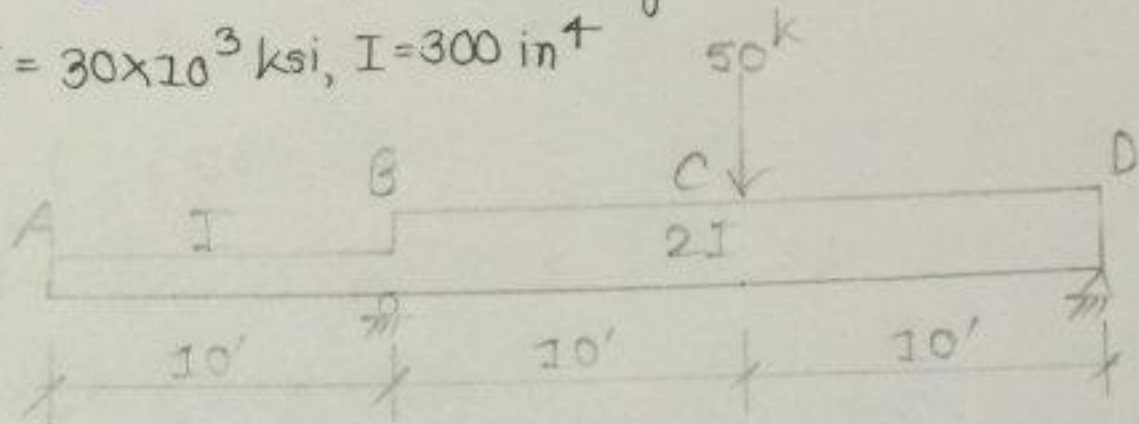 = 30×10³ ksi, I=300 in⁴
50ᵏ
A
B
C
D
I
2I
10'
10'
10'